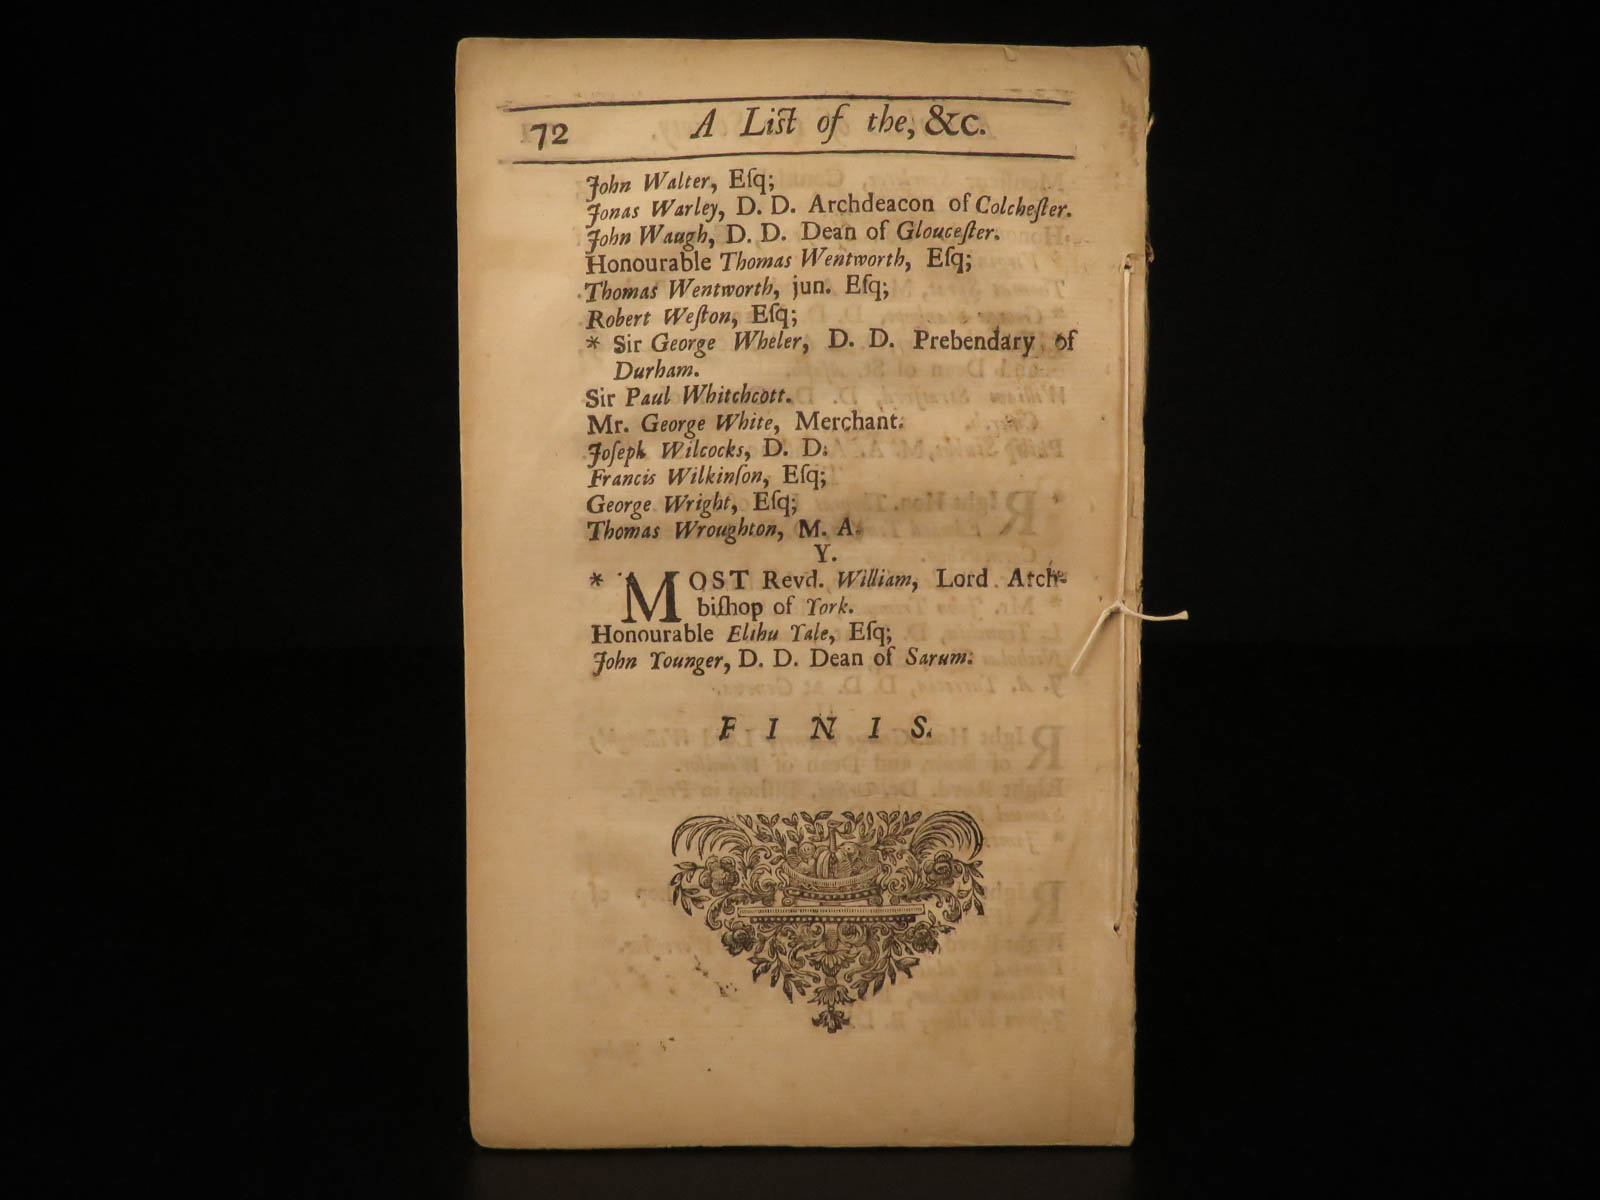 72
A List of the, &c.
John Walter, Eſq;
Jonas Warley, D. D. Archdeacon of Colcheſter.
John Waugh, D. D. Dean of Glouceſter.
Honourable Thomas Wentworth, Eſq;
Thomas Wentworth, jun. Eſq;
Robert Weſton, Eſq;
* Sir George Wheler, D. D. Prebendary of
Durham.
Sir Paul Whitchcott.
Mr. George White, Merchant.
Joſeph Wilcocks, D. D.
Francis Wilkinſon, Eſq;
George Wright, Eſq;
Thomas Wroughton, M. A.
Y.
* MOST Revd. William, Lord Arch-
biſhop of York.
Honourable Elihu Yale, Eſq;
John Younger, D. D. Dean of Sarum.
FINIS.